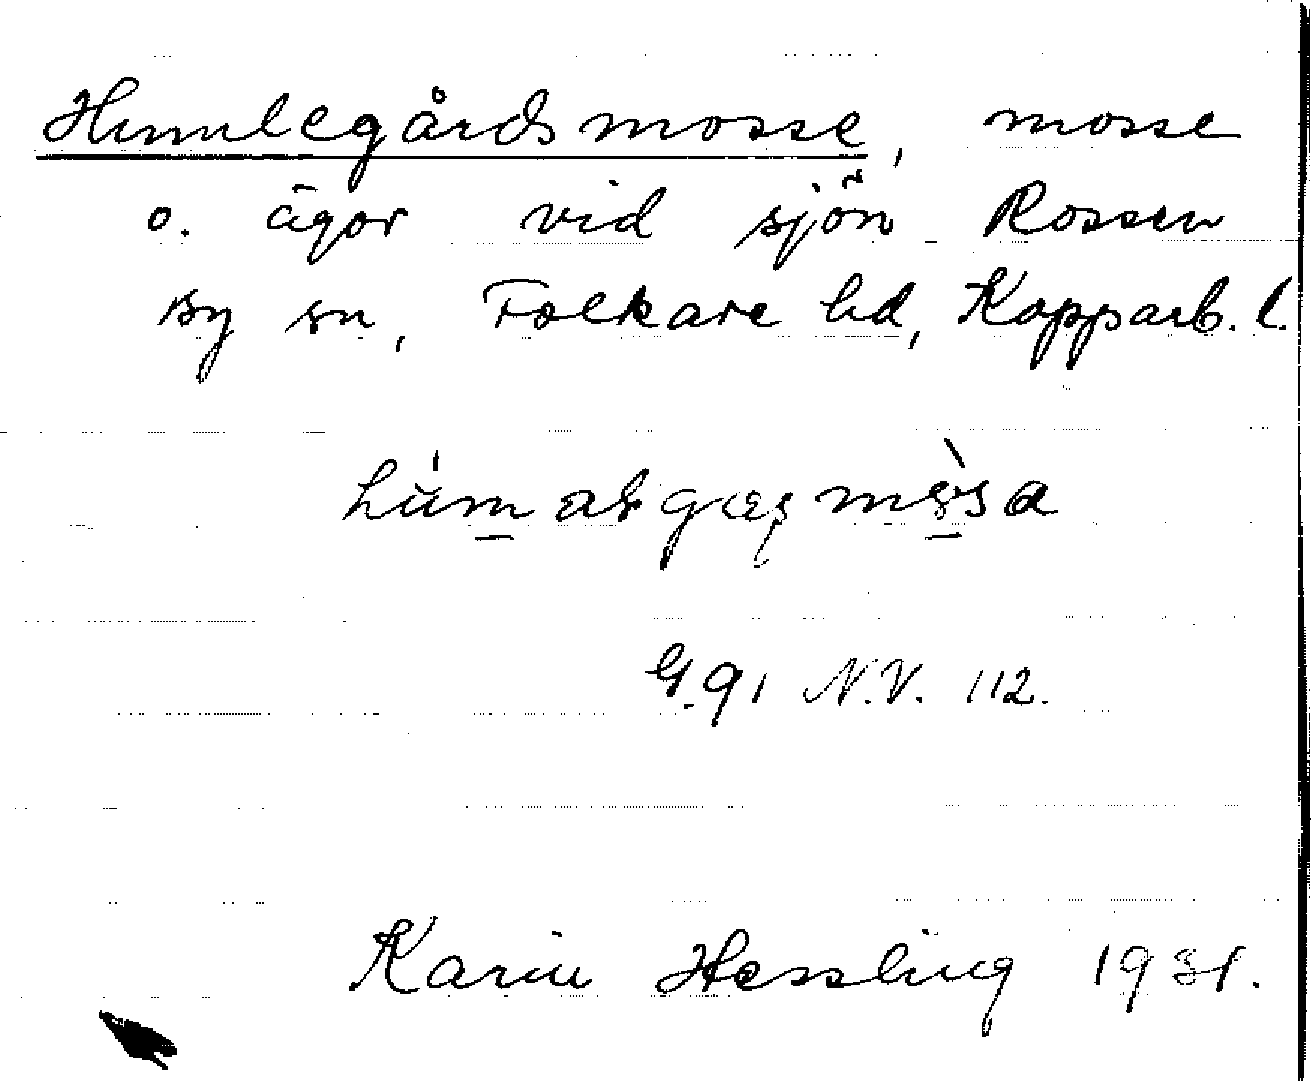 Humlegårdsmosse, mosse
o. ägor vid sjön Rossen
By sn, Folkare hd, Kopparb. l.
G. 91 N.V. 112.
Karin Hessling 1931.